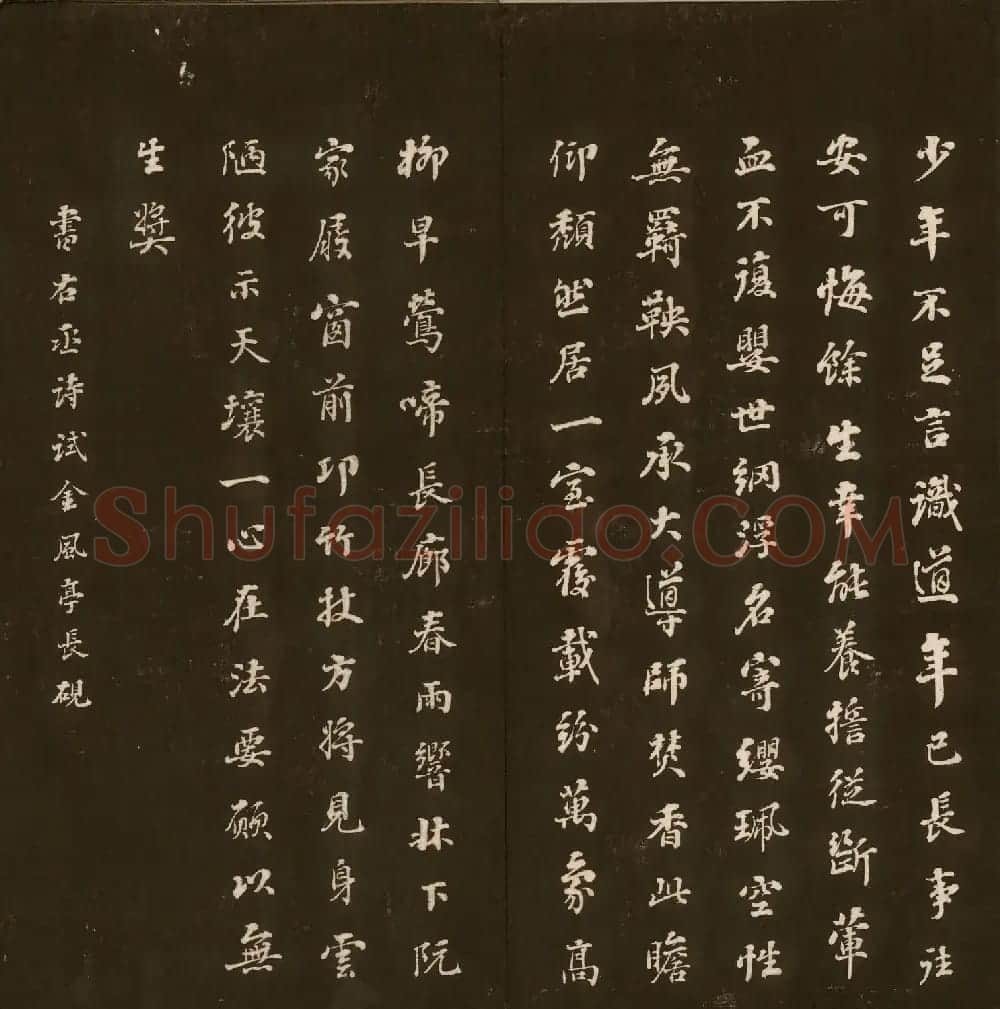 少年不足言識道年已長事往
安可悔餘生幸能養擔從斷葷
血不復嬰世網浮名寄纓珮空性
無羈鞅夙承大導師焚香此瞻
仰頹然居一室覆載紛萬象高
柳早鶯啼長廊春雨響牀下阮
家屐窗前邛竹杖方將見身雲
陋彼示天壤一心在法要願以無
生獎
書右丞詩試金風亭長硯
Shufaziliao.COM